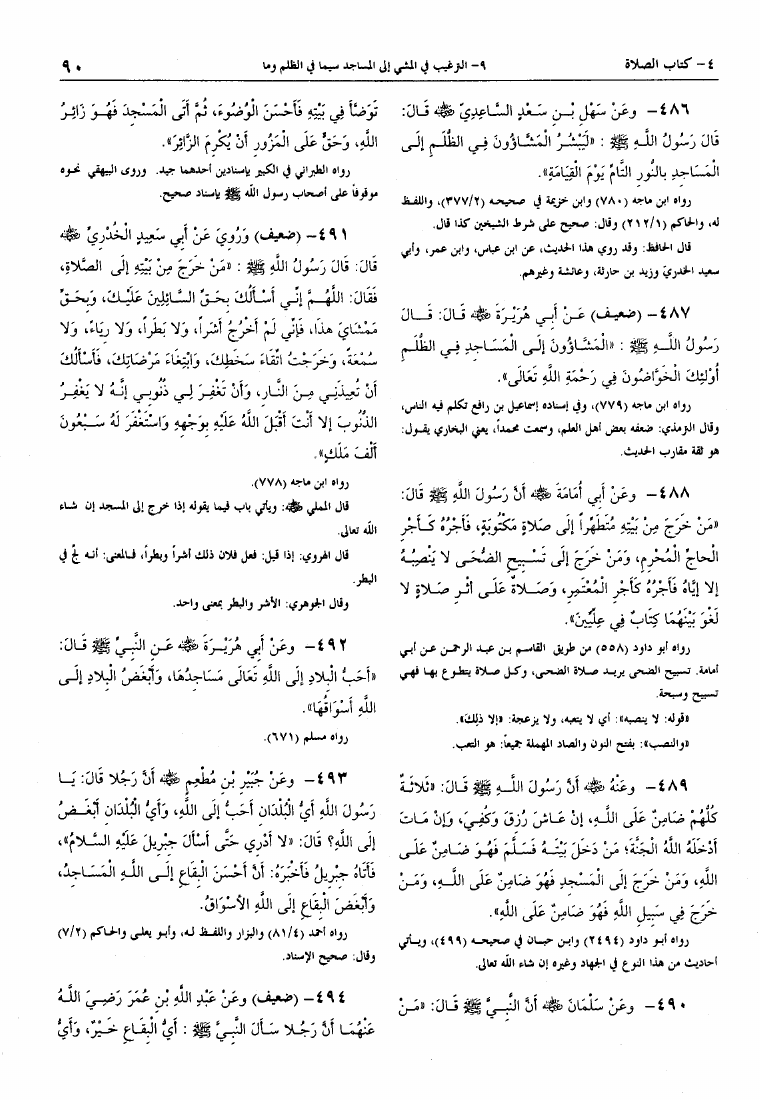 ٤- كتاب الصلاة
٩- الترغيب في المشي إلى المساجد سيما في الظلم وما
٩٠
٤٨٦- وعَنْ سَهْلِ بْـنِ سَعْدٍ السَّاعِدِيِّ ﷺ قَـالَ:
قَالَ رَسُولُ اللَّـهِ ﷺ : «لَيَبْشُرُ الْمَشَّـاؤُونَ فِـي الظُّلَـمِ إِلَـى
الْمَسَاجِدِ بالنُّورِ التَّامِّ يَوْمَ الْقِيَامَةِ».
رواه ابن ماجه (٧٨٠) وابن خزيمة في صحيحـه (٣٧٧/٢)، واللفـظ
له، والحاكم (٢١٢/١) وقال: صحيح على شرط الشيخين كذا قال.
قال الحافظ: وقد روي هذا الحديث، عن ابن عباس، وابن عمر، وأبي
سعيد الخدري وزيد بن حارثة، وعائشة وغيرهم.
٤٨٧- (ضعيف) عَـنْ أَبِـي هُرَيْـرَةَ ﷺ قَـالَ: قَـــالَ
رَسُولُ اللَّـهِ ﷺ : «الْمَشَّـاؤُونَ إِلَـى الْمَسَـاجِدِ فِـي الظُّلَـمِ
أُوْلئِكَ الْخَوَّاضُونَ فِي رَحْمَةِ اللَّهِ تَعَالَى».
رواه ابن ماجه (٧٧٩)، وفي إسناده إسماعيل بن رافع تكلم فيه الناس،
وقال الترمذي: ضعفه بعض أهل العلم، وسمعت محمداً، يعني البخاري يقـول:
هو ثقة مقارب الحديث.
٤٨٨- وعَنْ أَبِي أُمَامَةَ ﷺ أَنَّ رَسُولَ اللَّهِ ﷺ قَالَ:
«مَنْ خَرَجَ مِنْ بَيْتِهِ مُتَطَهِّراً إِلَى صَلاةٍ مَكْتُوبَةٍ، فَأَجْرُهُ كَـأَجْرِ
الْحاجِّ الْمُحْرِمِ، وَمَنْ خَرَجَ إِلَى تَسْـبِيحِ الضُّحَـى لا يَنْصِبُـهُ
إلا إيَّاهُ فَأَجْرُهُ كَأَجْرِ الْمُعْتَمِرِ، وَصَـلاةٌ عَلَـى أَثْـرِ صَـلاةٍ لا
لَغْوَ بَيْنَهُمَا كِتَابٌ فِي عِلِّيِّينَ».
رواه أبو داود (٥٥٨) من طريق القاسم بـن عبد الرحمـن عـن أبـي
أمامة. تسبيح الضحى يريـد صلاة الضحى، وكـل صلاة يتطـوع بهـا فهي
تسبيح وسبحة.
«قوله: لا ينصبه»: أي لا يتعبه، ولا يزعجة: «إلا ذلك».
«والنصب»: بفتح النون والصاد المهملة جميعاً: هو التعب.
٤٨٩- وعَنْهُ ﷺ أَنَّ رَسُولَ اللَّـهِ ﷺ قَـالَ: «ثَلاثَةٌ
كُلُّهُمْ ضَامِنٌ عَلَى اللَّـهِ، إِنْ عَـاشَ رُزِقَ وَكُفِيَ، وَإِنْ مَـاتَ
أَدْخَلَهُ اللَّهُ الْجَنَّةَ؛ مَنْ دَخَلَ بَيْتَـهُ فَسَـلَّمَ فَهُـوَ ضَـامِنٌ عَلَـى
اللَّهِ، وَمَـنْ خَـرَجَ إِلَى الْمَسْـجِدِ فَهُوَ ضَامِنٌ عَلَى اللَّـهِ، وَمَـنْ
خَرَجَ فِي سَبِيلِ اللَّهِ فَهُوَ ضَامِنٌ عَلَى اللَّهِ».
رواه أبـو داود (٢٤٩٤) وابـن حبـان في صحيحـه (٤٩٩)، ويـأتي
أحاديث من هذا النوع في الجهاد وغيره إن شاء الله تعالى.
٤٩٠- وعَنْ سَلْمَانَ ﷺ أَنَّ النَّبِـيَّ ﷺ قَالَ: «مَـنْ
تَوَضَّأَ فِي بَيْتِهِ فَأَحْسَنَ الْوُضُوءَ، ثُمَّ أَتَى الْمَسْجِدَ فَهُـوَ زَائِـرُ
اللَّهِ، وَحَقٌّ عَلَى الْمَزُورِ أَنْ يُكْرِمَ الزَّائِرَ».
رواه الطبراني في الكبير بإسنادين أحدهما جيد. وروى البيهقي نحـوه
موقوفاً على أصحاب رسول الله ﷺ بإسناد صحيح.
٤٩١- (ضعيف) وَرُوِيَ عَنْ أَبِي سَعِيدٍ الْخُدْرِيِّ ﷺ
قَالَ: قَالَ رَسُولُ اللَّهِ ﷺ : «مَنْ خَرَجَ مِنْ بَيْتِهِ إِلَى الصَّلاةِ،
فَقَالَ: اللَّهُـمَّ إِنِّـي أَسْـأَلُكَ بِحَـقِّ السَّـائِلِينَ عَلَيْـكَ، وَبِحَـقِّ
مَمْشَايَ هذَا، فَإِنِّي لَمْ أَخْرُجْ أَشَراً، وَلا بَطَراً، وَلا رِيَاءً، وَلا
سُمْعَةً، وَخَرَجْتُ اتِّقَاءَ سَخَطِكَ، وَابْتِغَاءَ مَرْضَاتِكَ، فَأَسْأَلُكَ
أَنْ تُعِيذَنِـي مِـنَ النَّـارِ، وَأَنْ تَغْفِـرَ لِـي ذُنُوبِـي إِنَّـهُ لا يَغْفِـرُ
الذُّنُوبَ إلا أَنْتَ أَقْبَلَ اللَّهُ عَلَيْهِ بِوَجْهِهِ وَاسْتَغْفَرَ لَهُ سَـبْعُونَ
أَلْفَ مَلَكٍ».
رواه ابن ماجه (٧٧٨).
قال المملي ﷺ: ويأتي باب فيما يقوله إذا خرج إلى المسجد إن شاء
الله تعالى.
قال الهروي: إذا قيل: فعل فلان ذلك أشراً وبطراً، فـالمعنى: أنـه لجّ في
البطر.
وقال الجوهري: الأشر والبطر بمعنى واحد.
٤٩٢- وعَنْ أَبِي هُرَيْـرَةَ ﷺ عَـنِ النَّبِـيِّ ﷺ قَـالَ:
«أَحَبُّ الْبِلادِ إِلَى اللَّهِ تَعَالَى مَسَـاجِدُهَا، وَأَبْغَضُ الْبِلادِ إِلَـى
اللَّهِ أَسْوَاقُهَا».
رواه مسلم (٦٧١).
٤٩٣- وعَنْ جُبَيْرِ بْنِ مُطْعِمٍ ﷺ أَنَّ رَجُلا قَالَ: يَـا
رَسُولَ اللَّهِ أَيُّ الْبُلْدَانِ أَحَبُّ إِلَى اللَّهِ، وَأَيُّ الْبُلْدَانِ أَبْغَـضُ
إِلَى اللَّهِ؟ قَالَ: «لا أَدْرِي حَتَّى أَسْأَلَ جِبْرِيلَ عَلَيْهِ السَّلامُ»،
فَأَتَاهُ جِبْرِيلُ فَأَخْبَرَهُ: أَنَّ أَحْسَنَ الْبِقَاعِ إِلَـى اللَّـهِ الْمَسَـاجِدُ،
وَأَبْغَضَ الْبِقَاعِ إِلَى اللَّهِ الأَسْوَاقُ.
رواه أحمد (٨١/٤) والبزار واللفـظ لـه، وأبـو يعلـى والحـاكم (٧/٢)
وقال: صحيح الإسناد.
٤٩٤- (ضعيف) وعَنْ عَبْدِ اللَّهِ بْنِ عُمَرَ رَضِـيَ اللَّـهُ
عَنْهُمَا أَنَّ رَجُلا سَأَلَ النَّبِيَّ ﷺ : أَيُّ الْبِقَاعِ خَـيْرٌ، وَأَيُّ